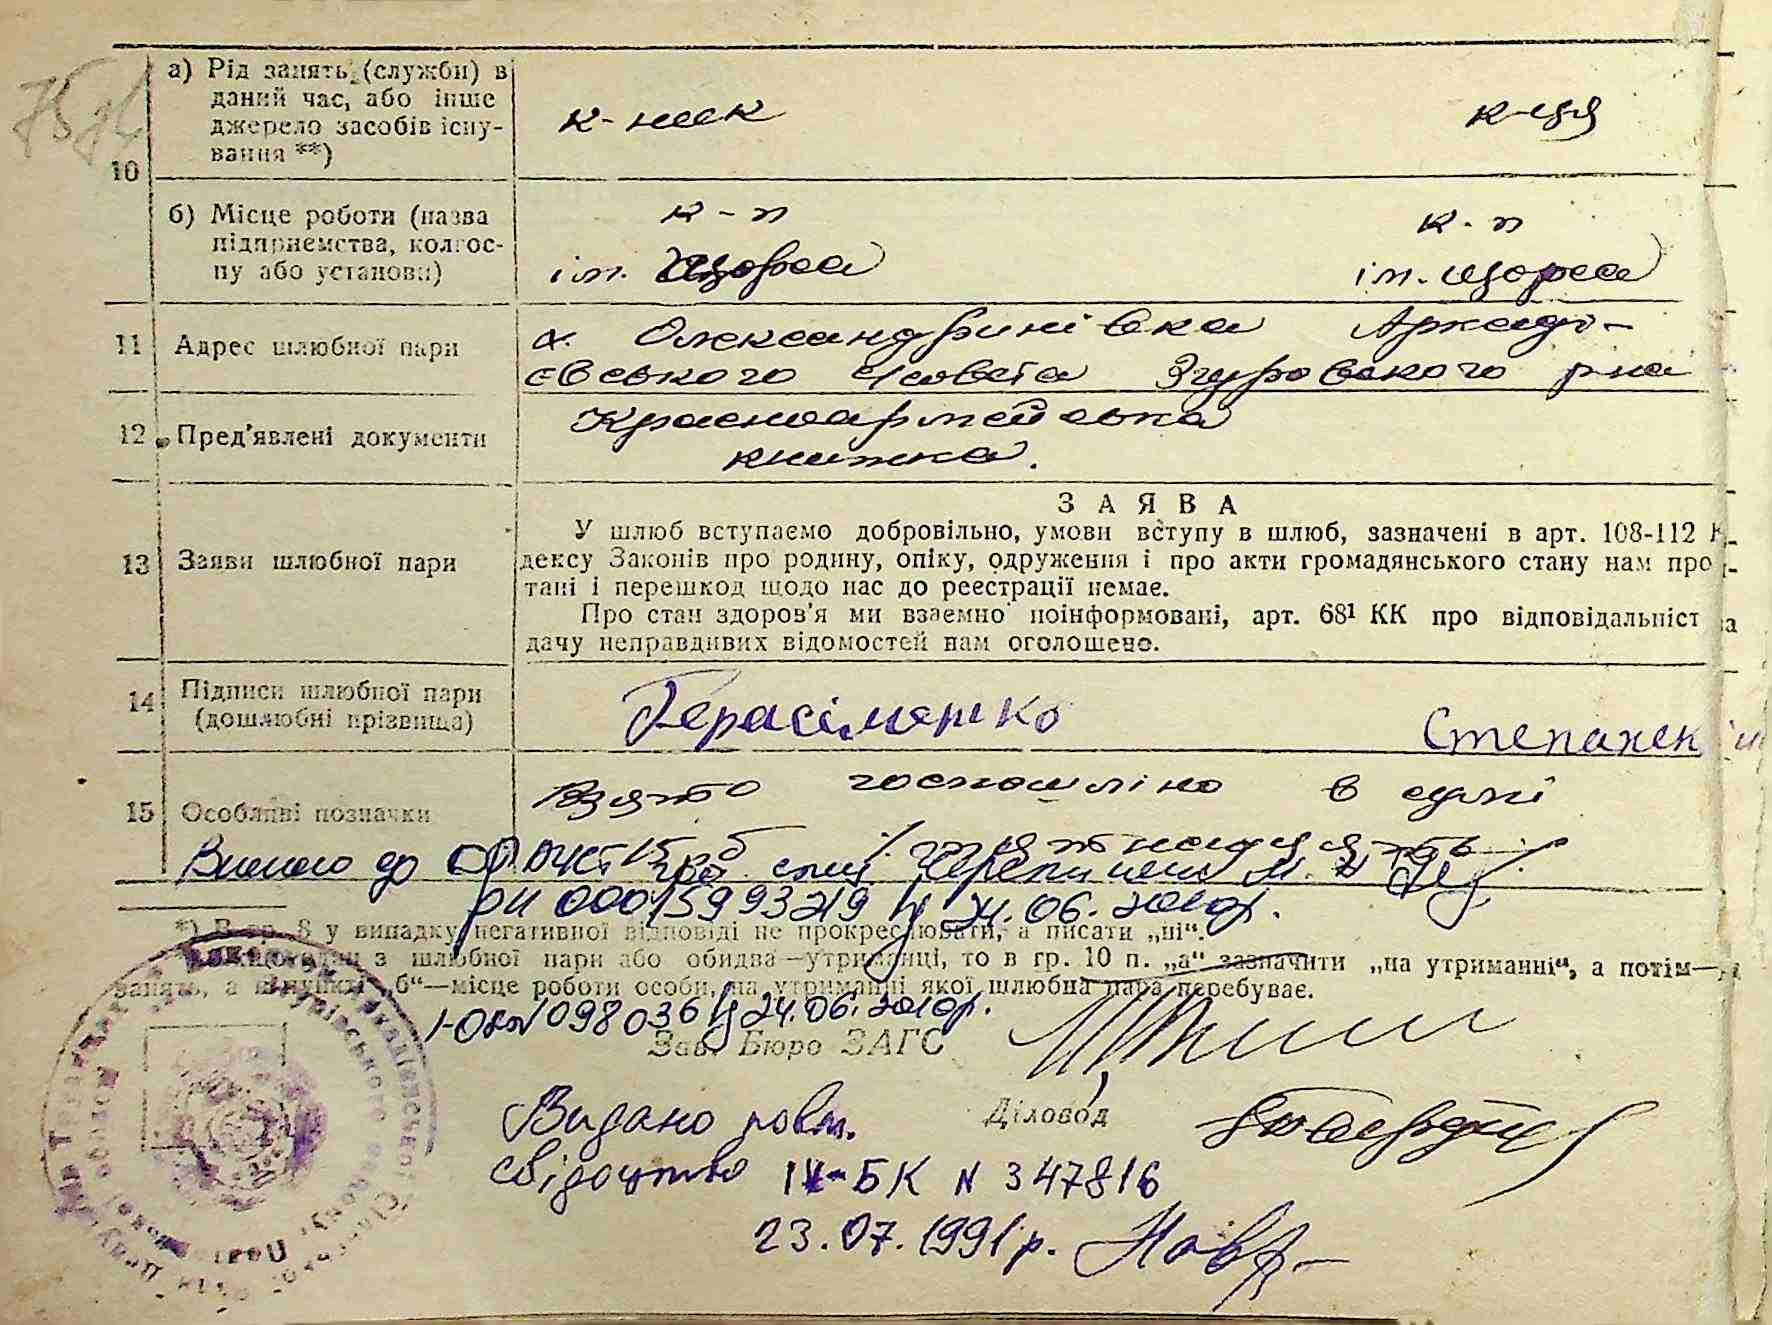 а) Рід занять (служби) в
даний час, або інше
джерело засобів існу-
вання **)
10
к-ник
к-ця
б) Місце роботи (назва
підприємства, колгос-
пу або установи)
к-п
ім. Щорса
к-п
ім. Щорса
11 Адрес шлюбної пари
Олександринівка Аркаді-
євського Згуровского р-на
12 Пред'явлені документи
Красноармейська
книжка.
13 Заяви шлюбної пари
ЗАЯВА
У шлюб вступаємо добровільно, умови вступу в шлюб, зазначені в арт. 108-112 К
дексу Законів про родину, опіку, одруження і про акти громадянського стану нам про
тані і перешкод щодо нас до реєстрації немає.
Про стан здоров'я ми взаємно поінформовані, арт. 68¹ КК про відповідальніст
дачу неправдивих відомостей нам оголошено.
14 Підписи шлюбної пари
(дошлюбні прізвища)
Герасіменко
Степанек
15 Особливі позначки
Взято госпошліно в сумі
15 руб
Внесено до
РИ 00015993219 24.06.2010р.
*) В гр. 8 у випадку негативної відповіді не прокреслювати, а писати „ні“.
з шлюбної пари або обидва—утриманці, то в гр. 10 п. „а“ зазначити „на утриманні“, а потім—
занять, а в пункті „б“—місце роботи особи, на утриманні якої шлюбна пара перебуває.
N 098036 24.06.2010р.
Зав. Бюро ЗАГС
Діловод
Видано повт.
свідоцтво ІV-БК N 347816
23.07.1991р.